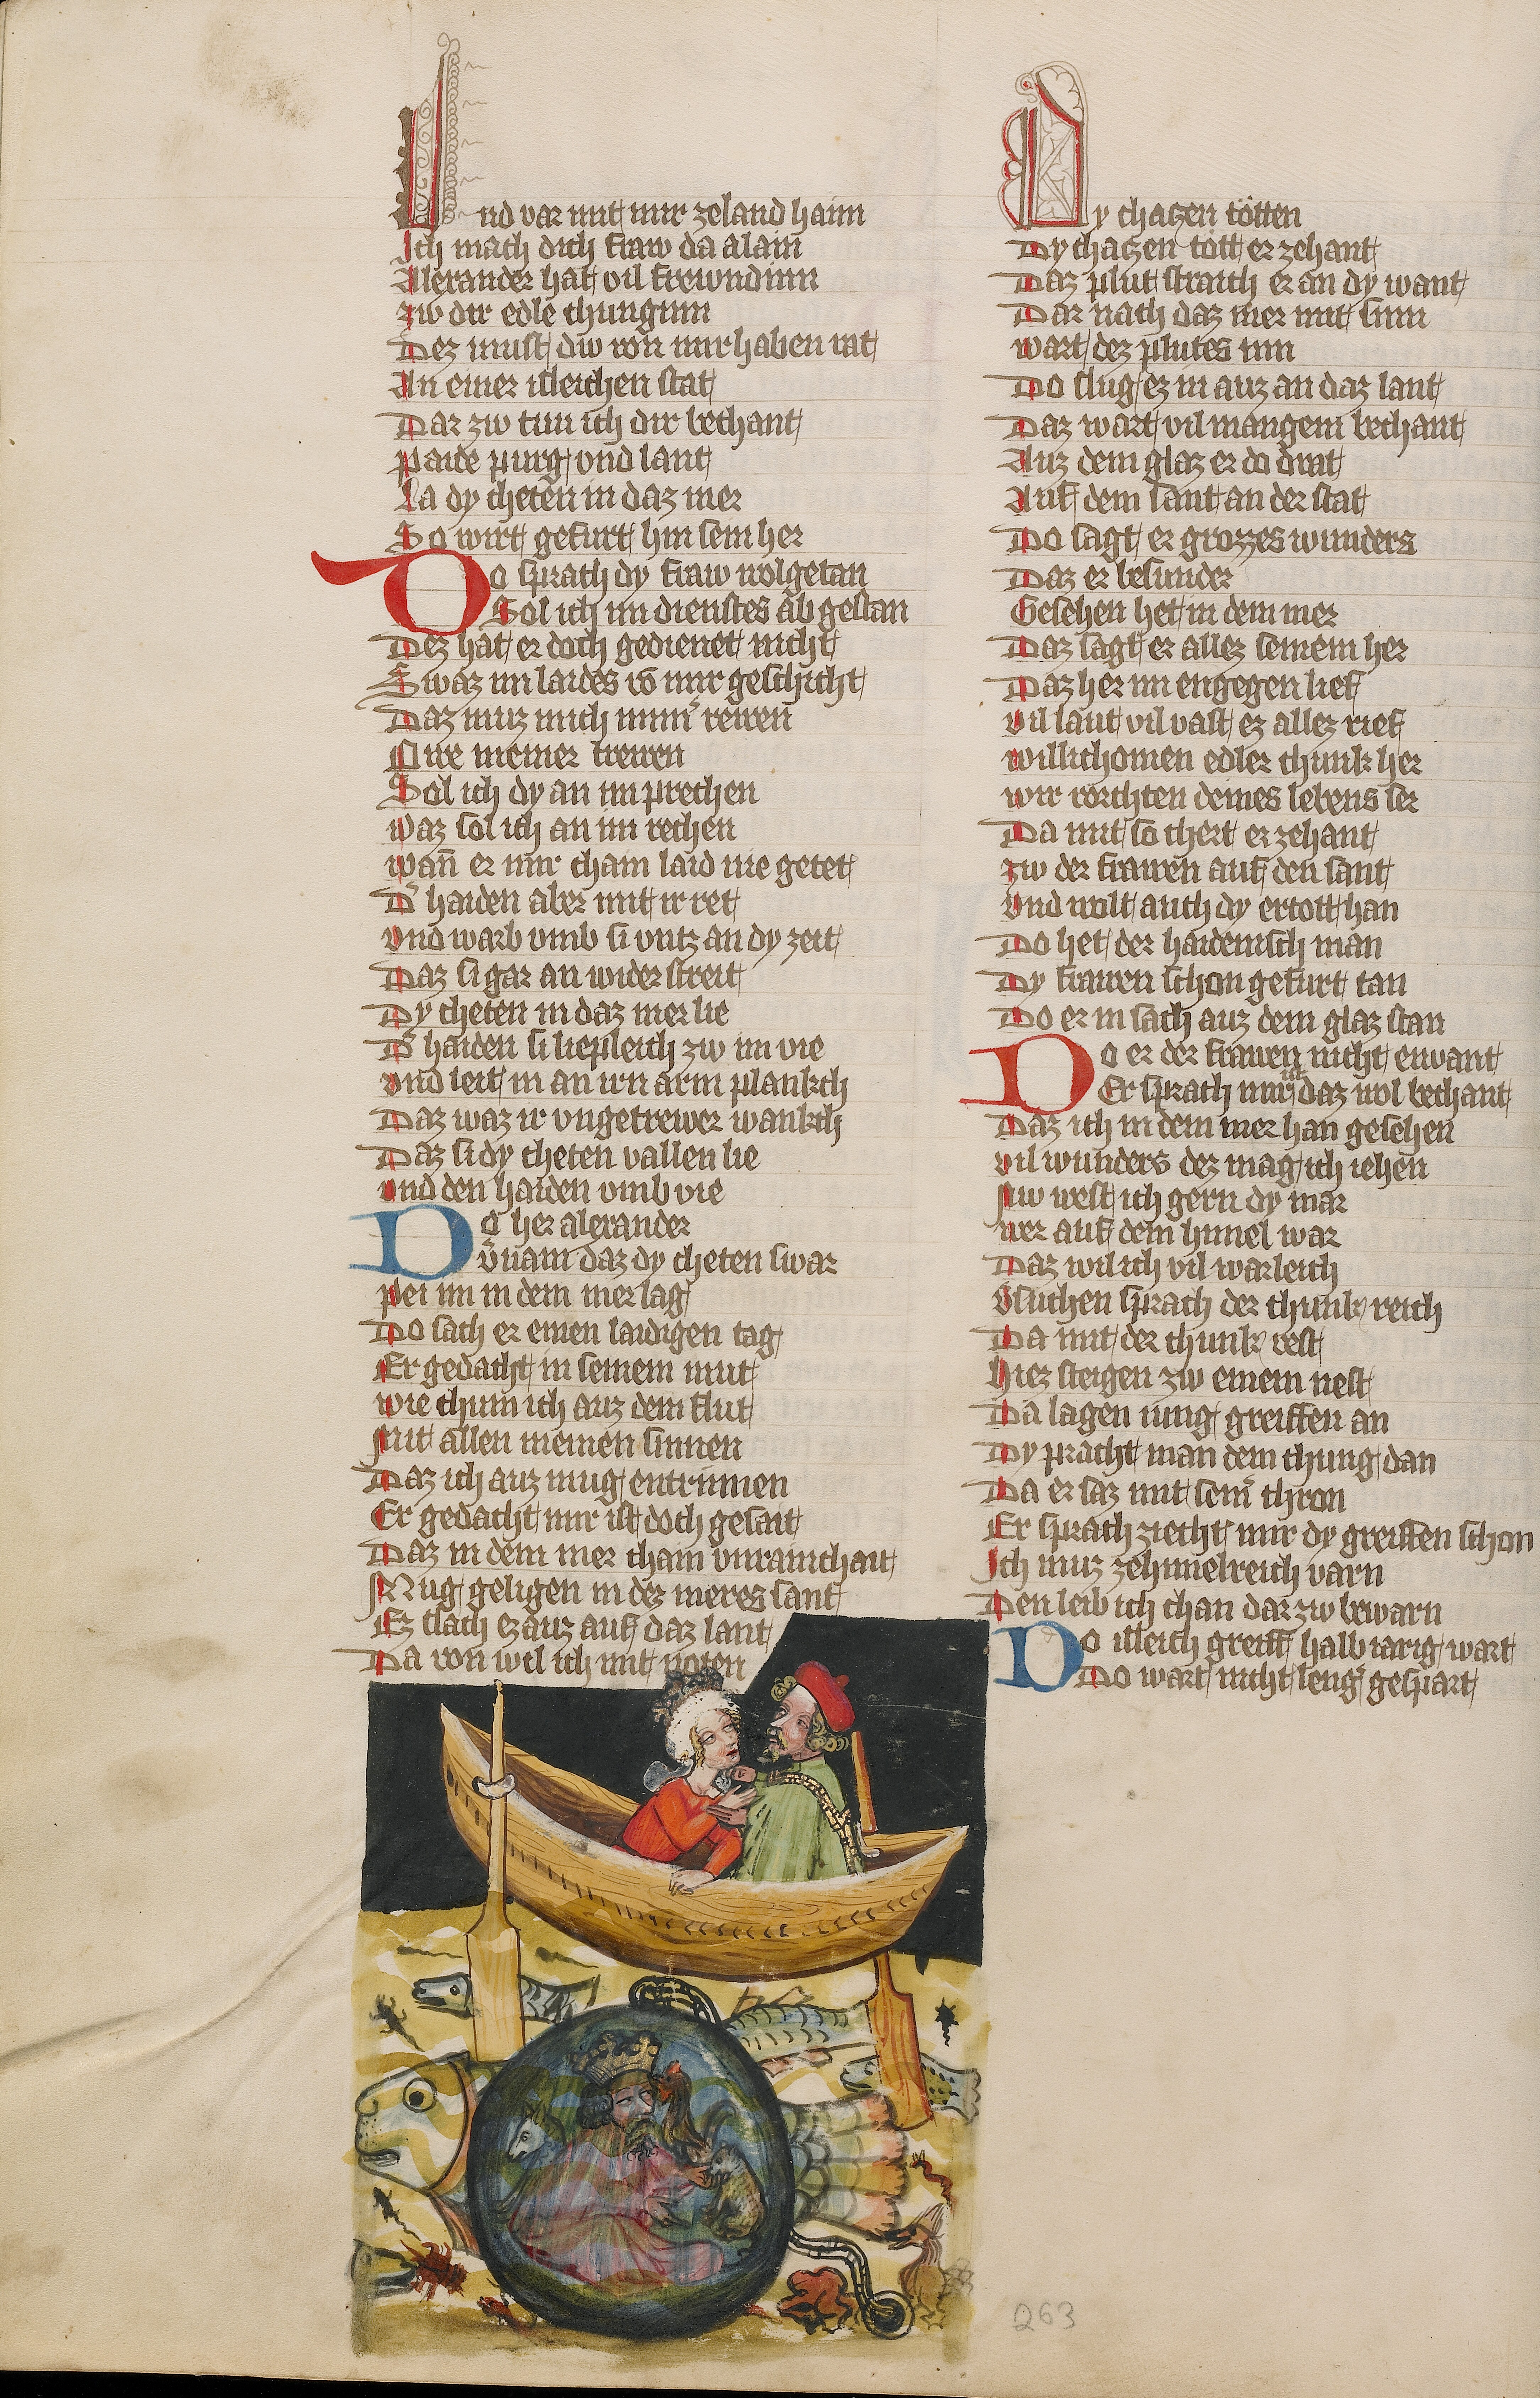 Und var mit mir zeland haim
Ich mach dich fraw da alain
Alexander hat vil frewndinn
zw dir edle chunginn
Dez must dw von mir haben rat
An einer isleichen stat
Dar zw tun ich dir bechant
paide purg vnd lant
La dy cheten in daz mer
So wirt gefurt hin sein her
Do sprach dy fraw wolgetan
Sol ich im dienstes ab gestan
Dez hat er doch gedienet nicht
Swaz im laides vo mir geschicht
Daz muz mich imm rewen
Awe meiner trewen
Sol ich dy an im prechen
waz sol ich an im rechen
wan er mir chain laid nie getet
D haiden aber mit ir ret
vnd warb vmb si vntz an dy zeit
Daz si gar an wider streit
Dy cheten in daz mer lie
D haiden si liepleich zw im vie
vnd leit in an irn arm plankch
Daz waz ir vngetrewer wankch
Daz si dy cheten vallen lie
vnd den haiden vmb vie
Do her alexander
vnam daz dy cheten swar
pei im in dem mer lag
Do sach er einen laidigen tag
Er gedacht in seinem mut
wie chum ich auz dem flut
Mit allen meinen sinnen
Daz ich auz mug entrinnen
Er gedacht mir ist doch gesait
Daz in dem mer chain vnrainchait
Mug geligen in dez meres sant
Ez slach ez auz auf daz lant
Da von wil ich mit noten
Dy chatzen totten
Dy chatzen tott er zehant
Daz plut straich er an dy want
Dar nach daz mer mit sinn
wart dez plutes inn
Do slug ez in auz an daz lant
Daz wart vil mangem bechant
Auz dem glaz er do drat
Auf dem sant an der stat
Do sagt er grozzes wunders
Daz er besunder
Gesehen het in dem mer
Daz sagt er allez seinem her
Daz her im engegen lief
vil laut vil vast ez allez rief
willichomen edler chunk her
wir vorchten deines lebens ser
Da mit so chert er zehant
zw der frawen auf den sant
vnd wolt auch dy ertott han
Do het der haidenisch man
Dy frawen schon gefurt tan
Do er in sach auz dem glaz stan
Do er der frawen nicht envant
Er sprach mir ist daz wol bechant
Daz ich in dem mer han gesehen
vil wunders dez mag ich iehen
Nw west ich gern dy mar
wer auf dem himel war
Daz wil ich vil warleich
vsuchen sprach der chunk reich
Da mit der chunk vest
hiez steigen zw einem nest
Da lagen iung greiffen an
Dy pracht man dem chung dan
Da er saz mit sein chron
Er sprach ziecht mir dy greiffen schon
Ich muz zehimelreich varn
Den leib ich chan dar zw bewarn
Do isleich greiff halb iarig wart
Do wart nicht leng gespart
263